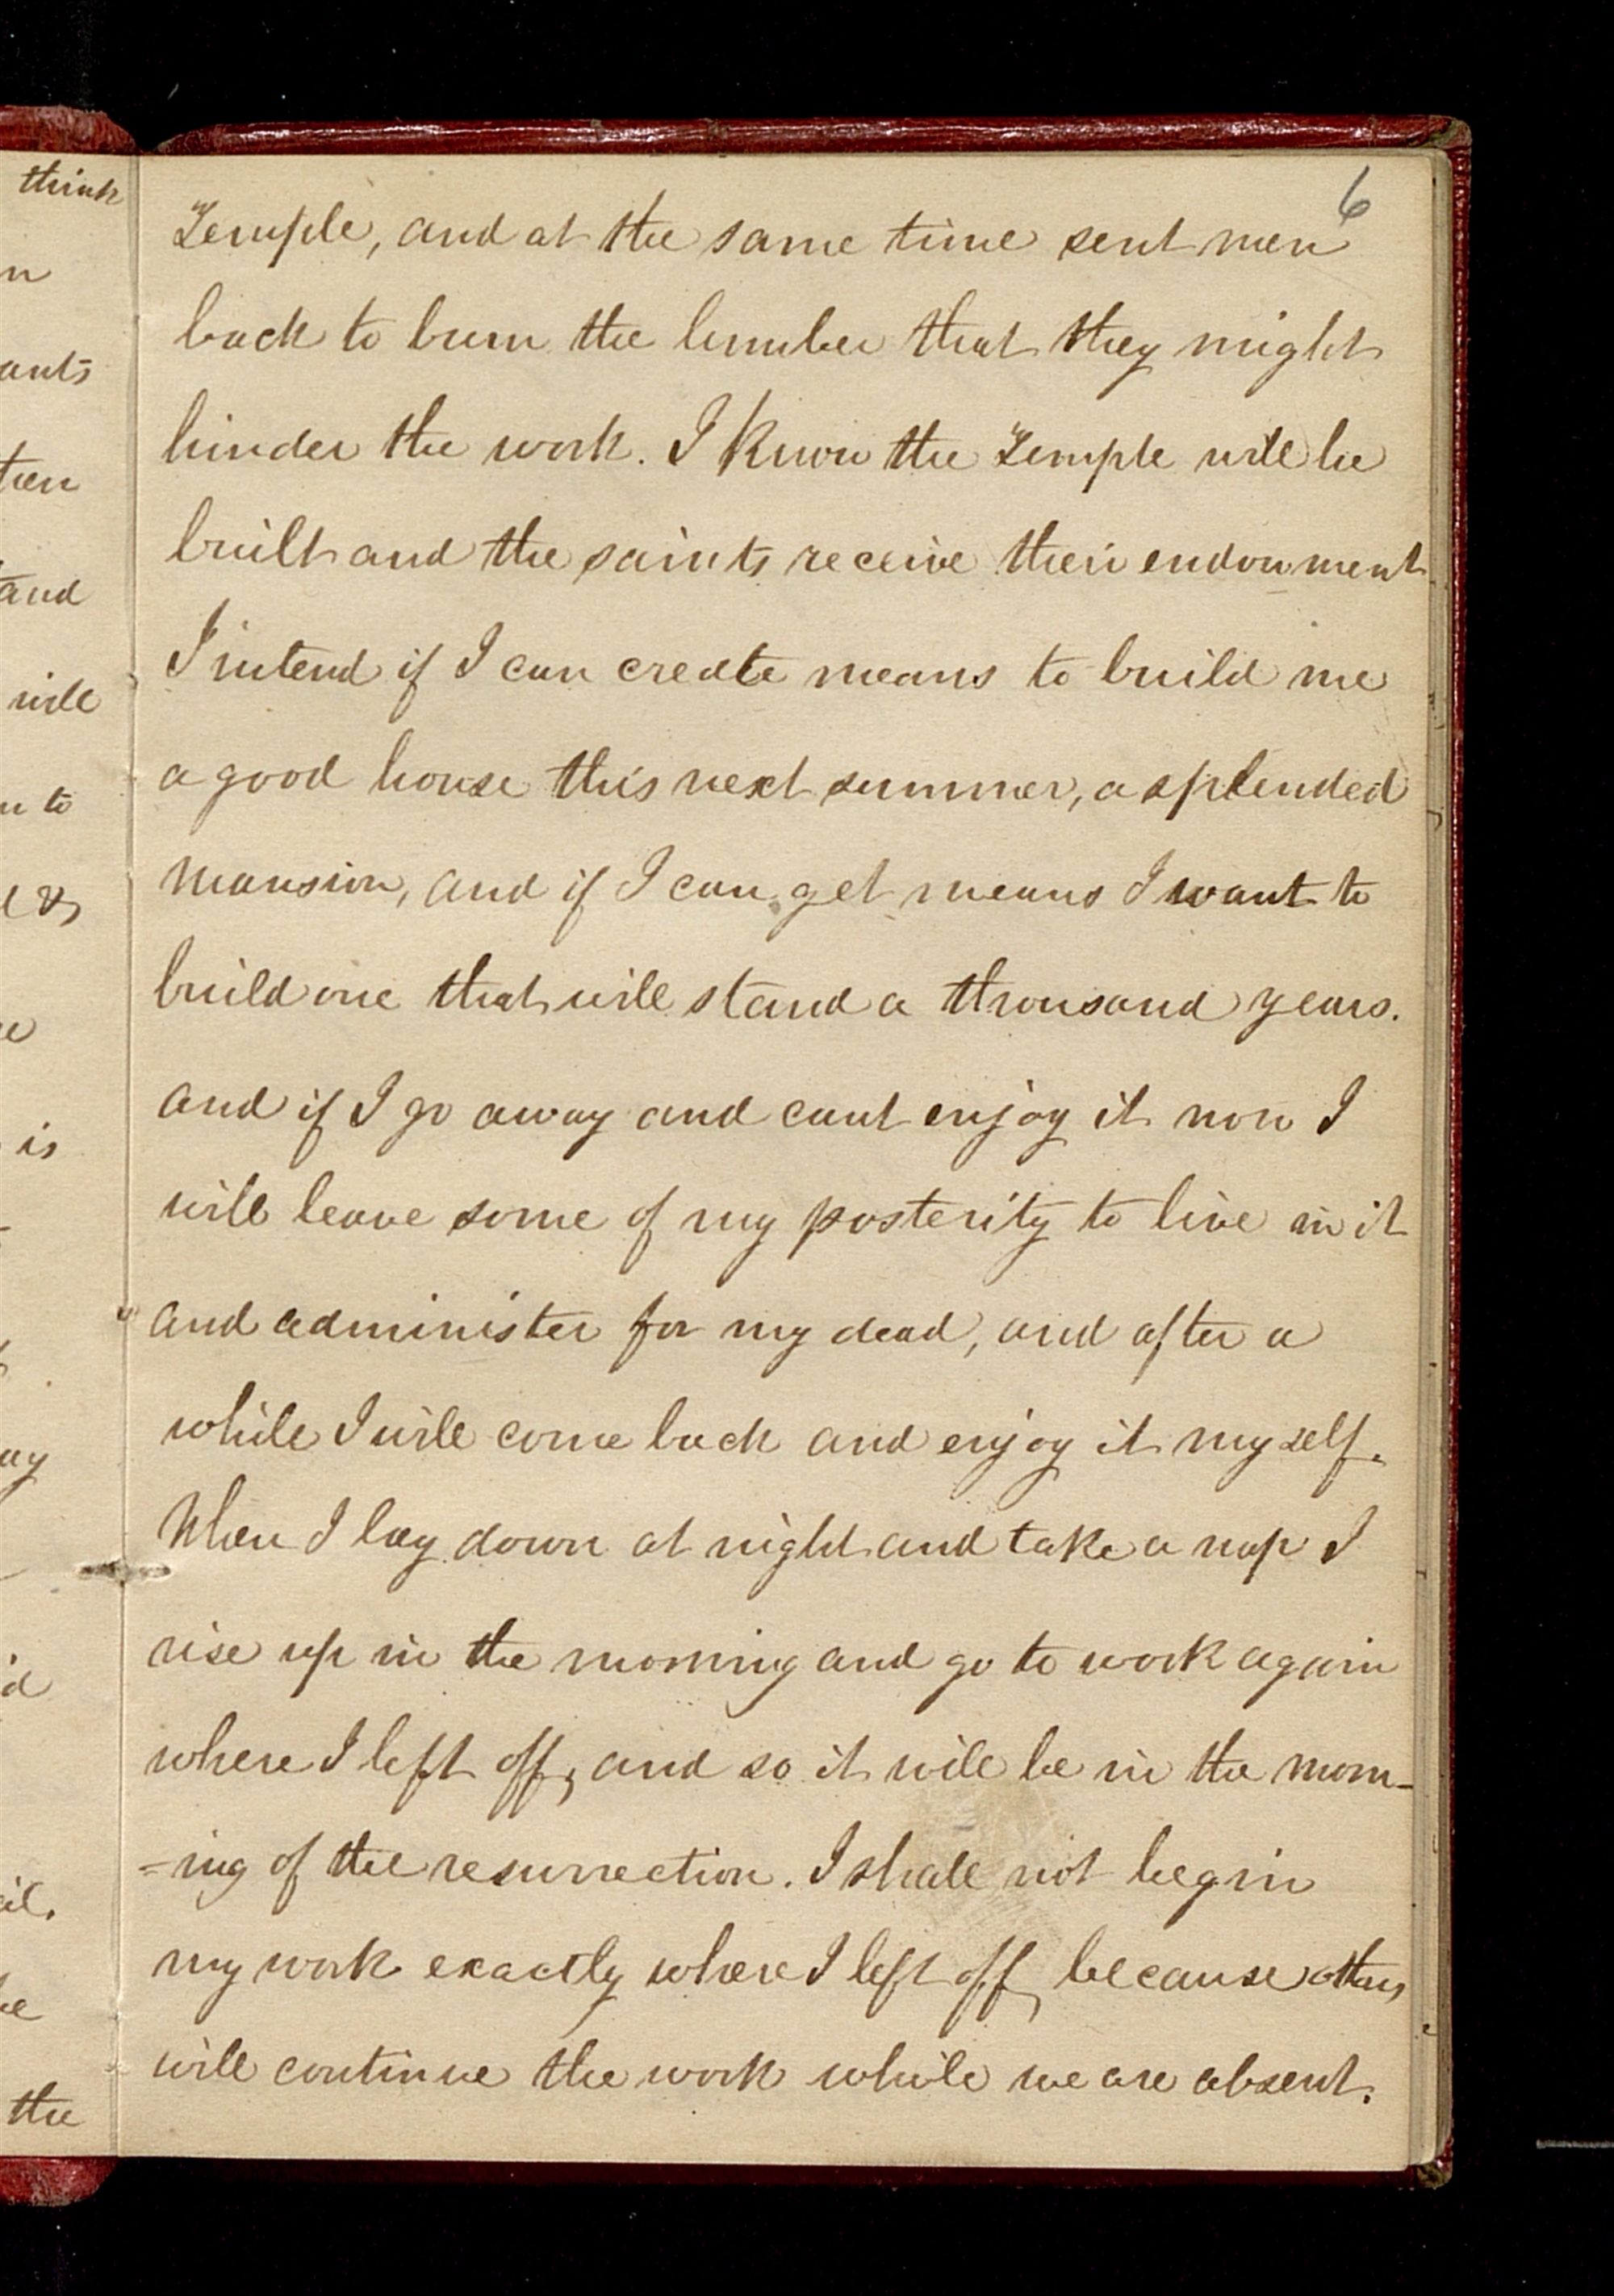 6
Temple, and at the same time sent men
back to burn the lumber that they might
hinder the work. I know the Temple will be
built and the saints receive their endowment
I intend if I can create means to build me
a good house this next summer, a splended
mansion, and if I can get means I want to
build one that will stand a thousand years.
and if I go away and cant enjoy it now I
will leave some of my posterity to live in it
and administer for my dead, and after a
while I will come back and enjoy it myself.
When I lay down at night and take a nap I
rise up in the morning and go to work again
where I left off, and so it will be in the morn-
=ing of the resurrection. I shall not begin
my work exactly where I left off, because others
will continue the work while we are absent.
think
n
ants
and
will
n to
is
ay
the